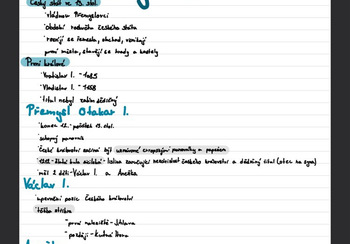 Český stát ve 13. stol.
· vládnou Přemyslovci
· období rozkvětu českého státu
· rozvíjí se řemesla, obchod, vznikají
první města, stavějí se hrady a kostely
První králové
· Vratislav I. - 1085
· Vladislav I. - 1158
· titul nebyl zatím dědičný
Přemysl Otakar I.
· konec 12. - počátek 13. stol.
· schopný panovník
· české království začíná být uznáváno evropskými panovníky a papežem
· 1212 - Zlatá bula sicilská - listina zaručující nezávislost českého království a dědičný titul (otec na syna)
· měl 2 děti - Václav I. a Anežka
Václav I.
· upevnění pozic českého království
· těžba stříbra
· první naleziště - Jihlava
· později - Kutná Hora